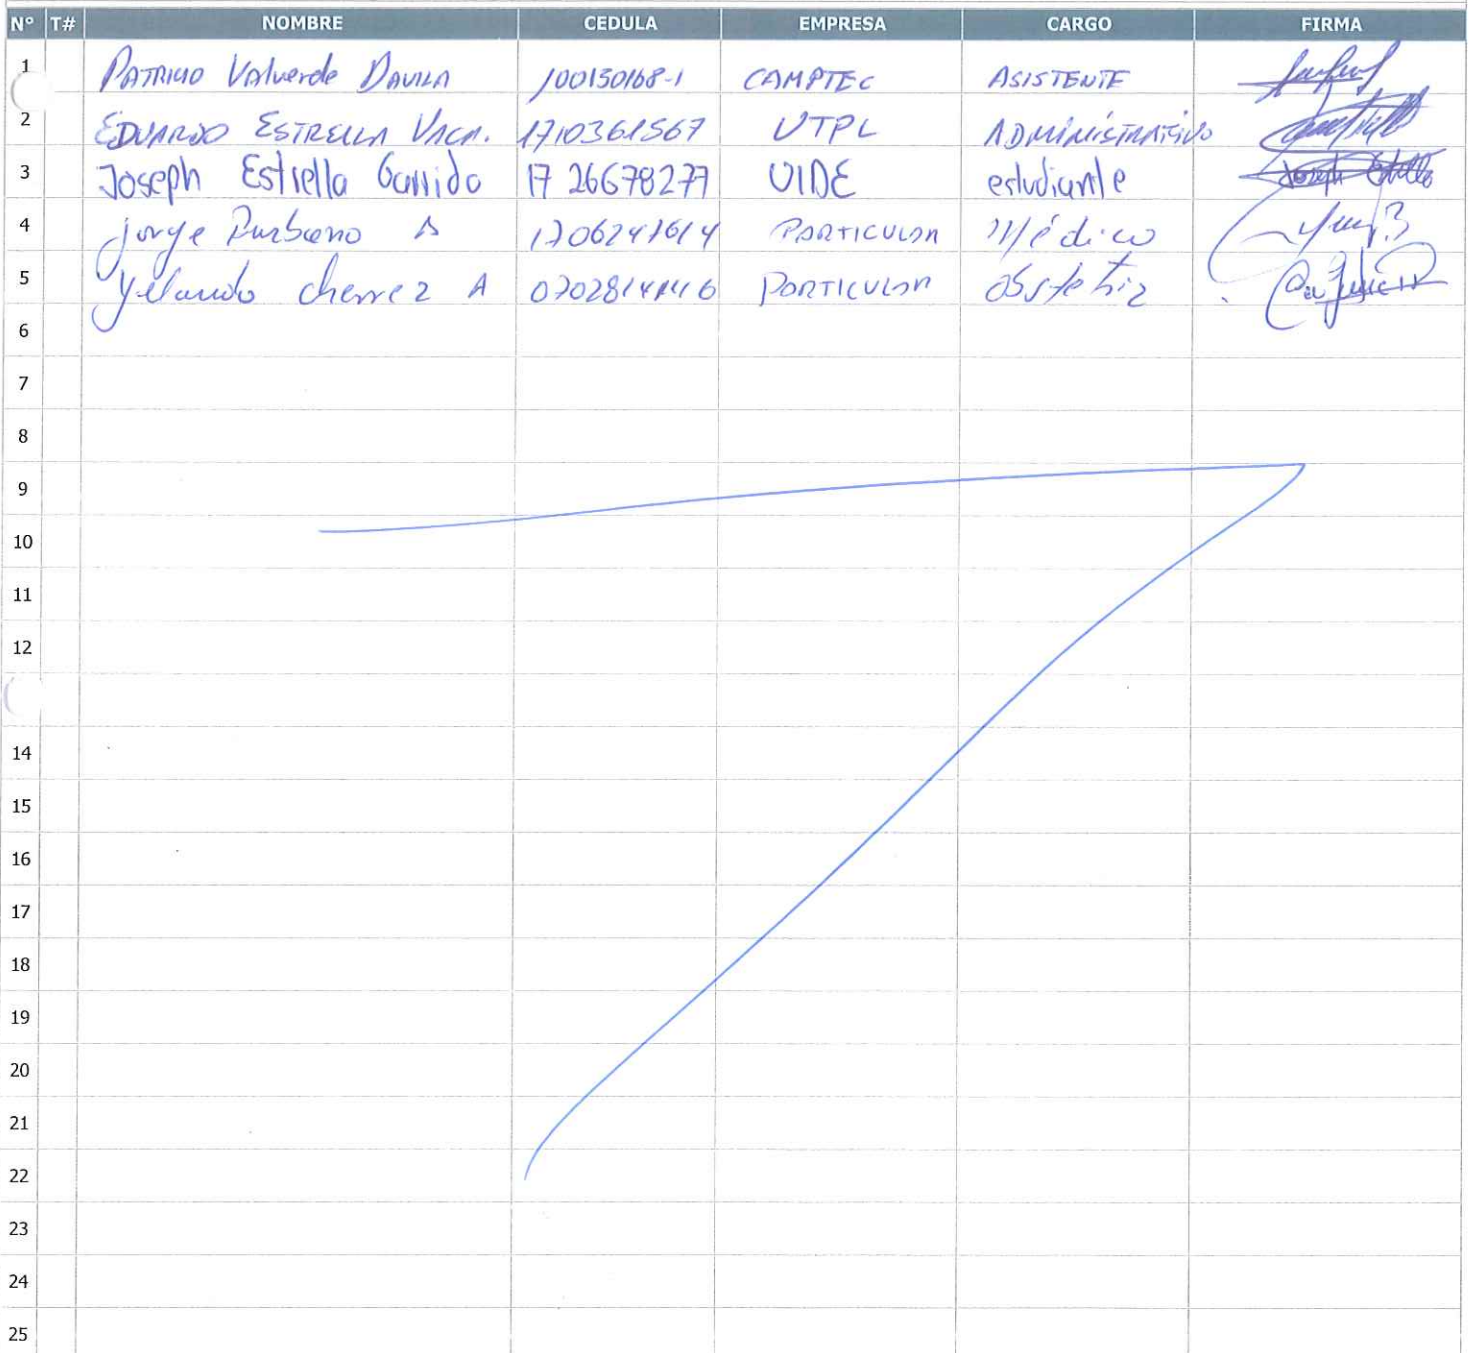 N° T# NOMBRE CEDULA EMPRESA CARGO FIRMA
1 PATRICIO Valverde DAVILA 100130168-1 CAMPTEC ASISTENTE
2 EDUARDO ESTRELLA VACA. 1710361567 UTPL ADMINISTRATIVO
3 Joseph Estrella Garrido 17 26678277 UIDE estudiante
4 jorge Burbano A 1706247614 PARTICULAR Médico
5 cherrez A PARTICULAR obstetriz
6
7
8
9
10
11
12
14
15
16
17
18
19
20
21
22
23
24
25